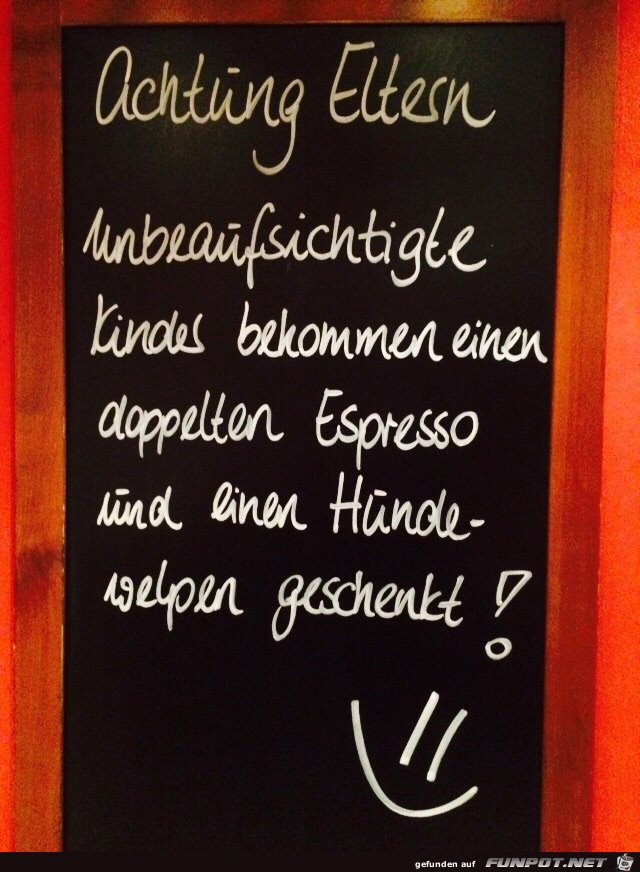 Achtung Eltern
unbeaufsichtigte
Kinder bekommen einen
doppelten Espresso
und einen Hunde-
welpen geschenkt!
gefunden auf FUNPOT.NET